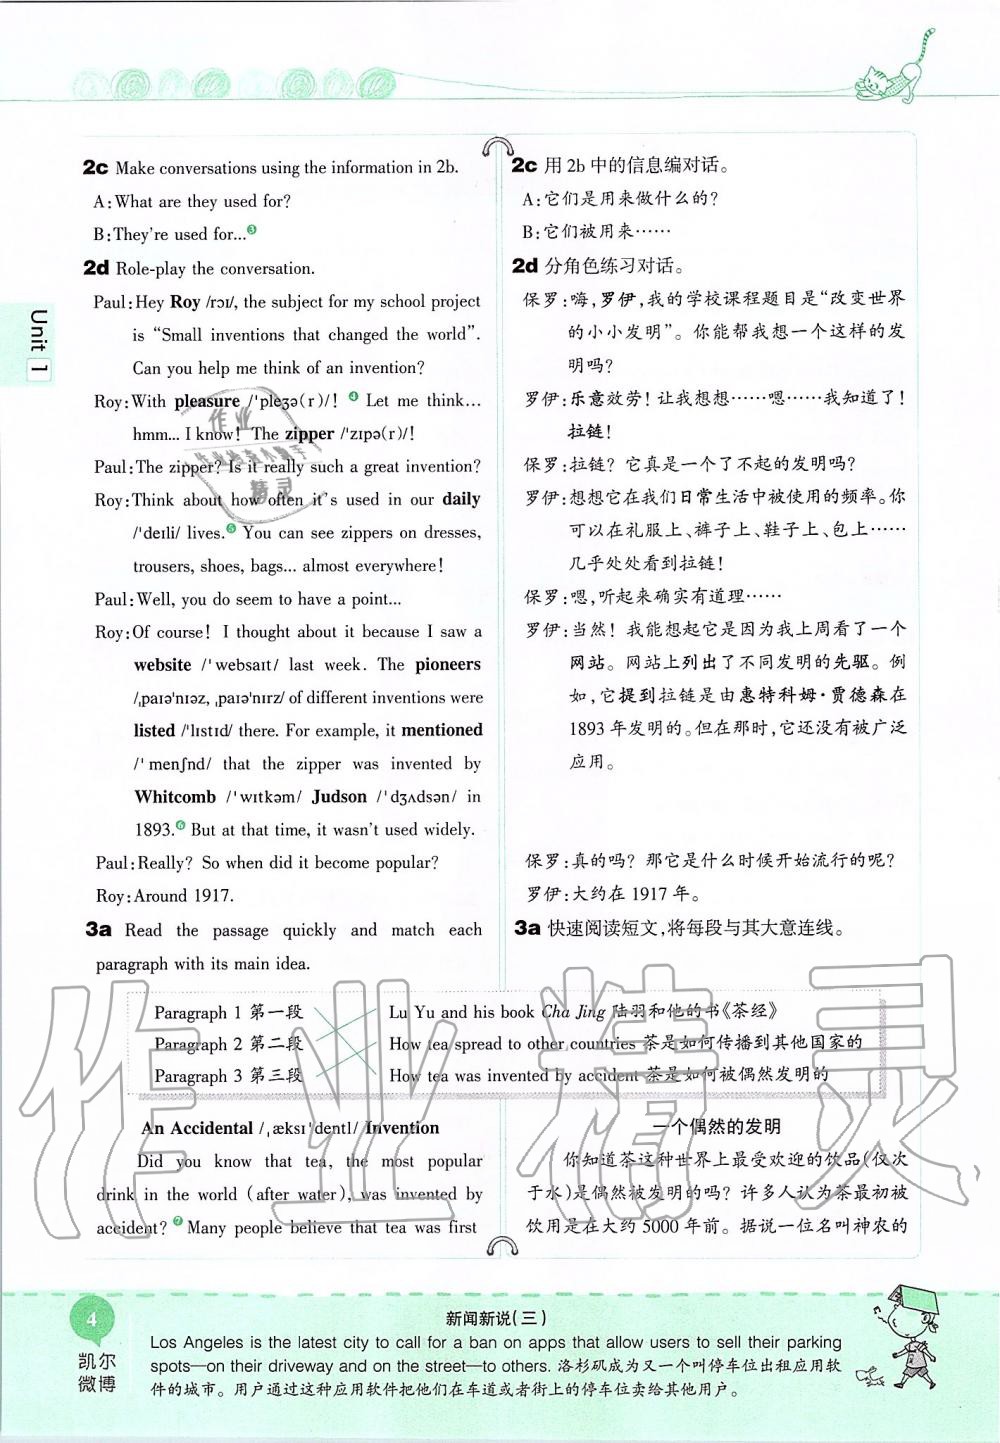 2c Make conversations using the information in 2b.
A:What are they used for?
B:They're used for...❸
2d Role-play the conversation.
Paul:Hey Roy /rɔɪ/, the subject for my school project
is “Small inventions that changed the world”.
Can you help me think of an invention?
Roy:With pleasure /ˈpleʒə(r)/! ❹ Let me think...
hmm... I know! The zipper /ˈzɪpə(r)/!
Paul:The zipper? Is it really such a great invention?
Roy:Think about how often it's used in our daily
/ˈdeɪli/ lives.❺ You can see zippers on dresses,
trousers, shoes, bags... almost everywhere!
Paul:Well, you do seem to have a point...
Roy:Of course! I thought about it because I saw a
website /ˈwebsaɪt/ last week. The pioneers
/ˌpaɪəˈnɪəz, ˌpaɪəˈnɪrz/ of different inventions were
listed /ˈlɪstɪd/ there. For example, it mentioned
/ˈmenʃnd/ that the zipper was invented by
Whitcomb /ˈwɪtkəm/ Judson /ˈdʒʌdsən/ in
1893.❻ But at that time, it wasn't used widely.
Paul:Really? So when did it become popular?
Roy:Around 1917.
3a Read the passage quickly and match each
paragraph with its main idea.
2c 用 2b 中的信息编对话。
A:它们是用来做什么的?
B:它们被用来……
2d 分角色练习对话。
保罗:嗨,罗伊,我的学校课程题目是“改变世界
的小小发明”。你能帮我想一个这样的发
明吗?
罗伊:乐意效劳! 让我想想……嗯……我知道了!
拉链!
保罗:拉链? 它真是一个了不起的发明吗?
罗伊:想想它在我们日常生活中被使用的频率。你
可以在礼服上、裤子上、鞋子上、包上……
几乎处处看到拉链!
保罗:嗯,听起来确实有道理……
罗伊:当然! 我能想起它是因为我上周看了一个
网站。网站上列出了不同发明的先驱。例
如,它提到拉链是由惠特科姆·贾德森在
1893 年发明的。但在那时,它还没有被广泛
应用。
保罗:真的吗? 那它是什么时候开始流行的呢?
罗伊:大约在 1917 年。
3a 快速阅读短文,将每段与其大意连线。
Paragraph 1 第一段 Lu Yu and his book Cha Jing 陆羽和他的书《茶经》
Paragraph 2 第二段 How tea spread to other countries 茶是如何传播到其他国家的
Paragraph 3 第三段 How tea was invented by accident 茶是如何被偶然发明的
An Accidental /ˌæksɪˈdentl/ Invention
Did you know that tea, the most popular
drink in the world (after water), was invented by
accident? ❼ Many people believe that tea was first
一个偶然的发明
你知道茶这种世界上最受欢迎的饮品(仅次
于水)是偶然被发明的吗? 许多人认为茶最初被
饮用是在大约 5000 年前。据说一位名叫神农的
Unit 1
作业
精灵
作业精灵
4
凯尔
微博
新闻新说(三)
Los Angeles is the latest city to call for a ban on apps that allow users to sell their parking
spots—on their driveway and on the street—to others. 洛杉矶成为又一个叫停车位出租应用软
件的城市。用户通过这种应用软件把他们在车道或者街上的停车位卖给其他用户。